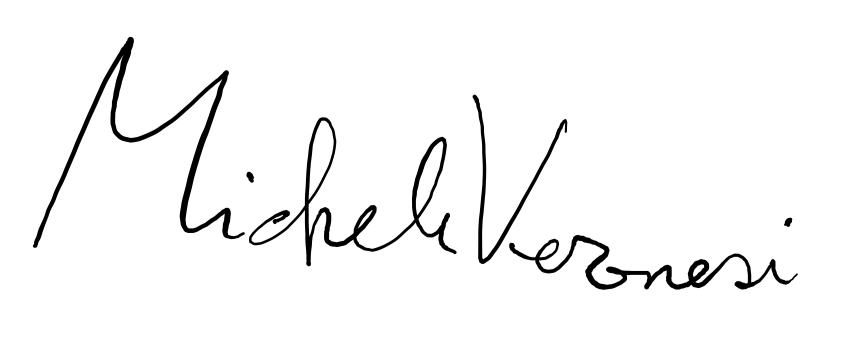 Michele Veronesi